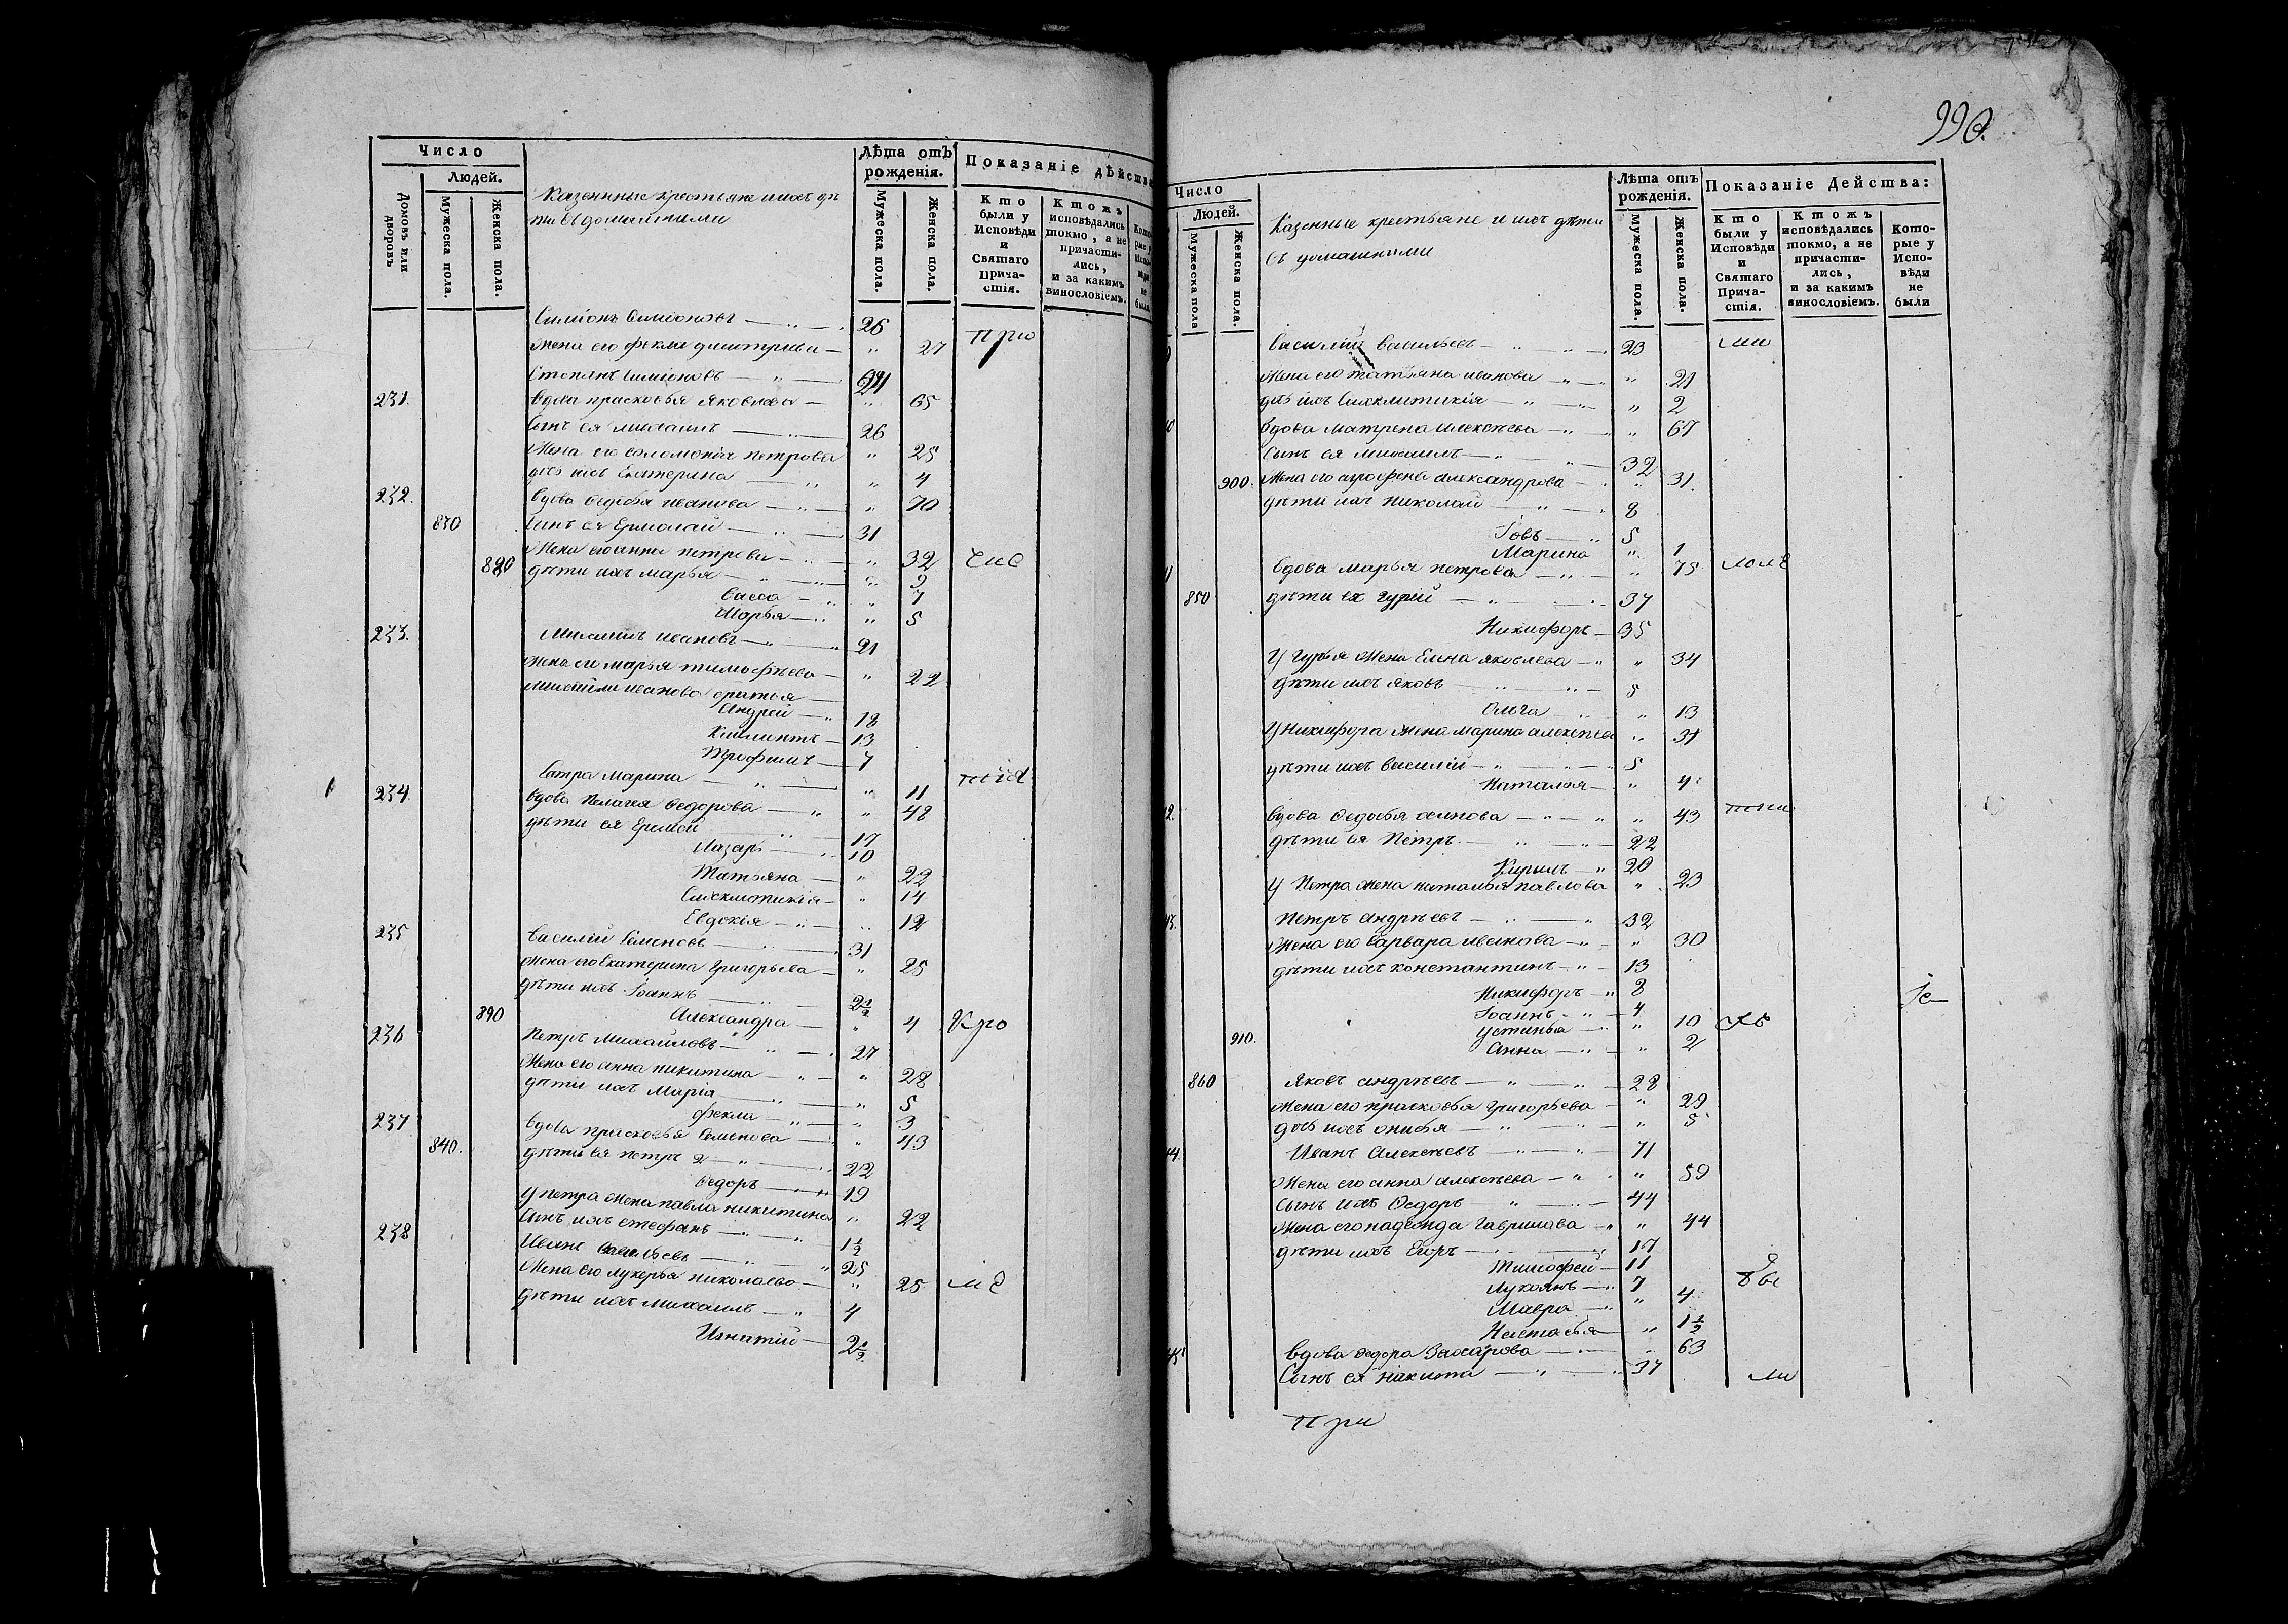 Число
Людей.
Домовъ или дворовъ
Мужеска пола.
Женска пола.
Казенные крестьяне и ихъ дѣ
ти съ домашними
Лѣта отъ рожденія.
Мужеска пола.
Женска пола.
Показаніе дѣйства
Кто были у Исповѣди и Святаго Прича- стія.
Ктожъ исповѣдались токмо, а не причасти- лись, и за какимъ винословіемъ.
Симіонъ Симіоновъ 26
Жена его Фекла Димитріева 27
Степанъ Симіоновъ
231. Вдова Прасковья Яковлева 65
Сынъ ея Михаилъ 26
Жена его Соломонія Петрова 25
дчь ихъ Екатерина 4
232. Вдова Федосья Иванова 70
870 Сынъ ея Ермолай 31
Жена его Анна Петрова 32
880 дѣти ихъ Марья 9
Васса 7
Марья 5
233. Михаилъ Ивановъ 21
Жена его Марья Тимофѣева 22
Михайлы Иванова братья
Андрей 18
13
Трофимъ 7
Сестра Марина 11
234. Вдова Пелагея Федорова 48
дѣти ея 17
Лазарь 10
Татьяна 22
Синклитикія 14
Евдокія 12
235 Василій Семеновъ 31
Жена его Екатерина Григорьева 25
дѣти ихъ Іоаннъ 2½
890 Александра 4
236 Петръ Михайловъ 27
Жена его Анна Никитина 28
дѣти ихъ Марія 5
Фекла 3
237 Вдова Прасковья Семенова 43
840. дѣти ея Петръ 22
Федоръ 19
У Петра жена Павла Никитина 22
Сынъ ихъ Стефанъ 1½
238 Иванъ Васильевъ 25
Жена его Лукерья Николаева 25
дѣти ихъ Михаилъ 4
Игнатій 2½
990.
Число
Людей.
Мужеска пола
Женска пола.
Казенные крестьяне и ихъ дѣти
съ домашними
Лѣта отъ рожденія.
Мужеска пола.
Женска пола.
Показаніе Действа:
Кто были у Исповѣди и Святаго Прича- стія.
Ктожъ исповѣдались токмо, а не причасти- лись, и за какимъ винословіемъ.
Кото- рые у Испо- вѣди не были
Василій Васильевъ 23
Жена его Татьяна Иванова 21
дчь ихъ Синклитикія 2
Вдова Матрена Алексѣева 67
Сынъ ея Михаилъ 32
900. Жена его Агрофена Александрова 31.
дѣти ихъ Николай 8
Іовъ 5
Марина 1
Вдова Марья Петрова 75
850 дѣти ея Гурій 37
Никифоръ 35
У Гурья жена Елена Яковлева 34
дѣти ихъ Яковъ 5
Ольга 13
У Никифора жена Марина Алексѣева 31
дѣти ихъ Василій 5
Наталья 4
Вдова Федосья Осипова 43
дѣти ея Петръ 22
Кирилъ 20
У Петра жена Наталья Павлова 23
Петръ Андрѣевъ 32
Жена его Варвара Иванова 30
дѣти ихъ Константинъ 13
Никифоръ 8
Іоаннъ 4
Устинья 10
910. Анна 2
860 Яковъ Андрѣевъ 28
Жена его Прасковья Григорьева 29
дчь ихъ Онисья 5
Иванъ Алексѣевъ 71
Жена его Анна Алексѣева 59
Сынъ ихъ Федоръ 44
Жена его Надежда Гаврилова 44
дѣти ихъ Егоръ 17
Тимофей 11
Лукіянъ 7
Мавра 4
Настасья 1½
Вдова Федора Захарова 63
Сынъ ея Никита 37
При